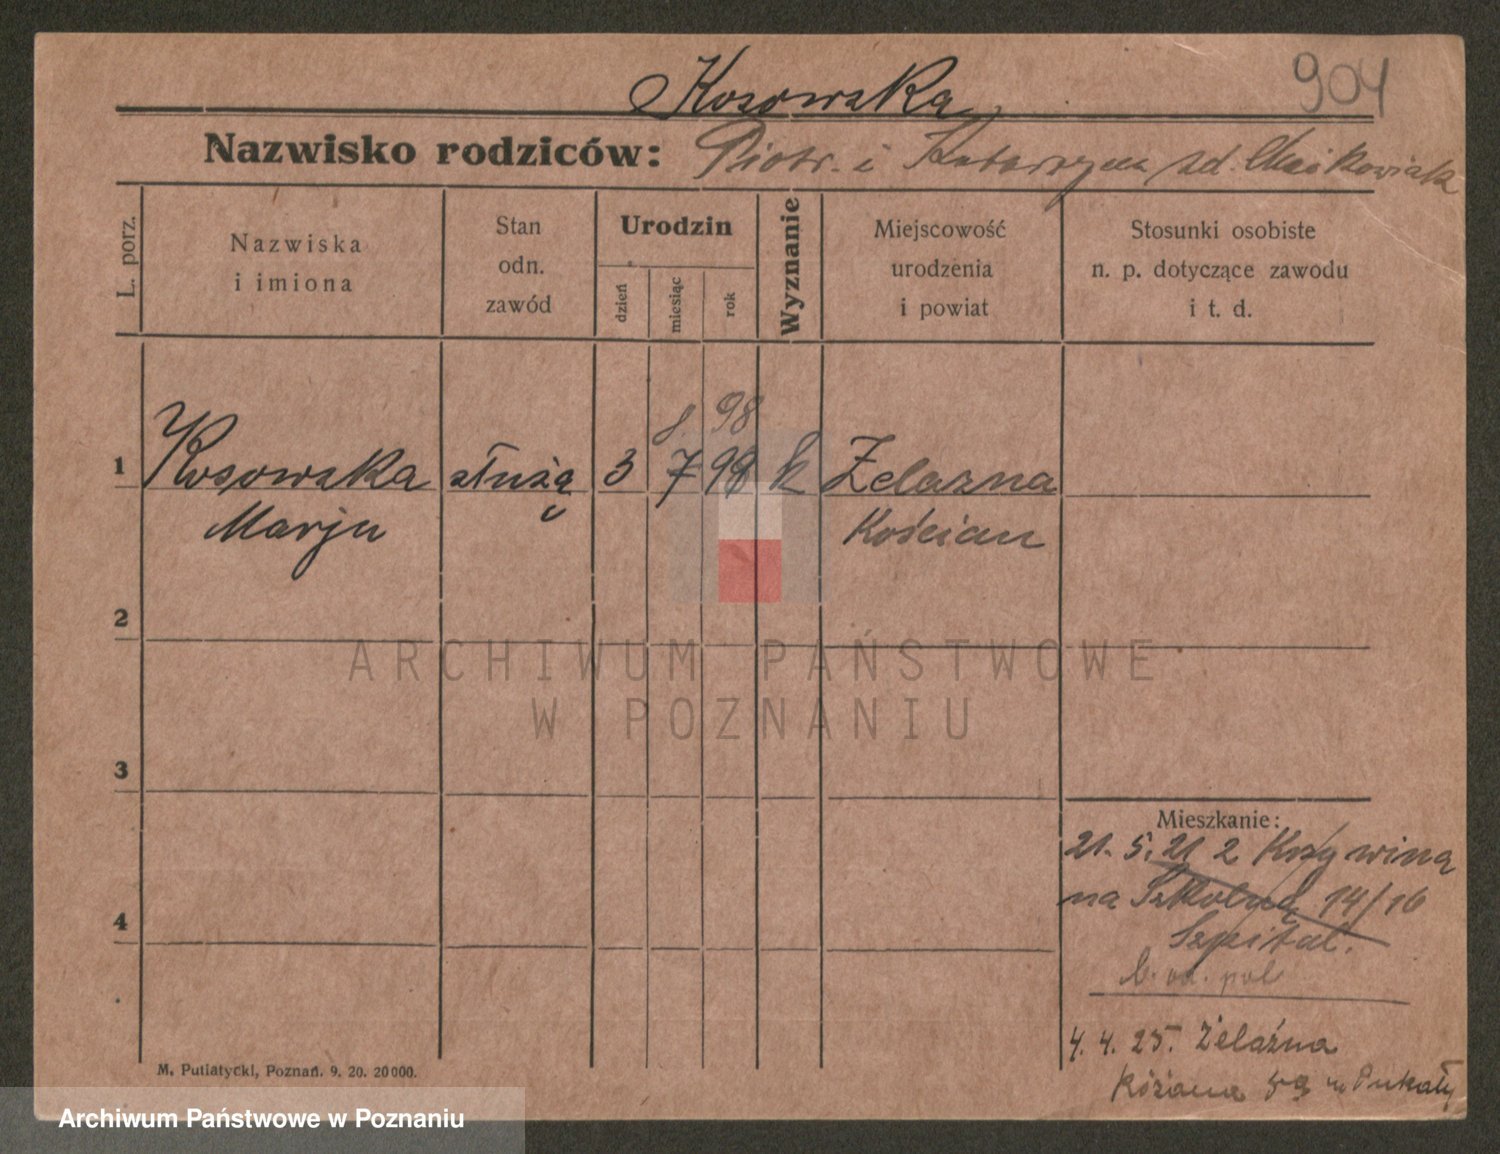 Kosowska
904
Nazwisko rodziców: Piotr. i Katarzyna zd.
L. porz.
Nazwiska
i imiona
Stan
odn.
zawód
Urodzin
dzień
miesiąc
rok
Wyznanie
Miejscowość
urodzenia
i powiat
Stosunki osobiste
n. p. dotyczące zawodu
i t. d.
8. 98
1 Kosowska służą 3 7 98 k Żelazna
Marja Kościan
2
3
4
Mieszkanie:
21. 5. 21 z
na Szkolną 14/16
Szpital.
4. 4. 25. Żelaźna
Różana
M. Putiatycki, Poznań. 9. 20. 20000.
ARCHIWUM PAŃSTWOWE
W POZNANIU
Archiwum Państwowe w Poznaniu